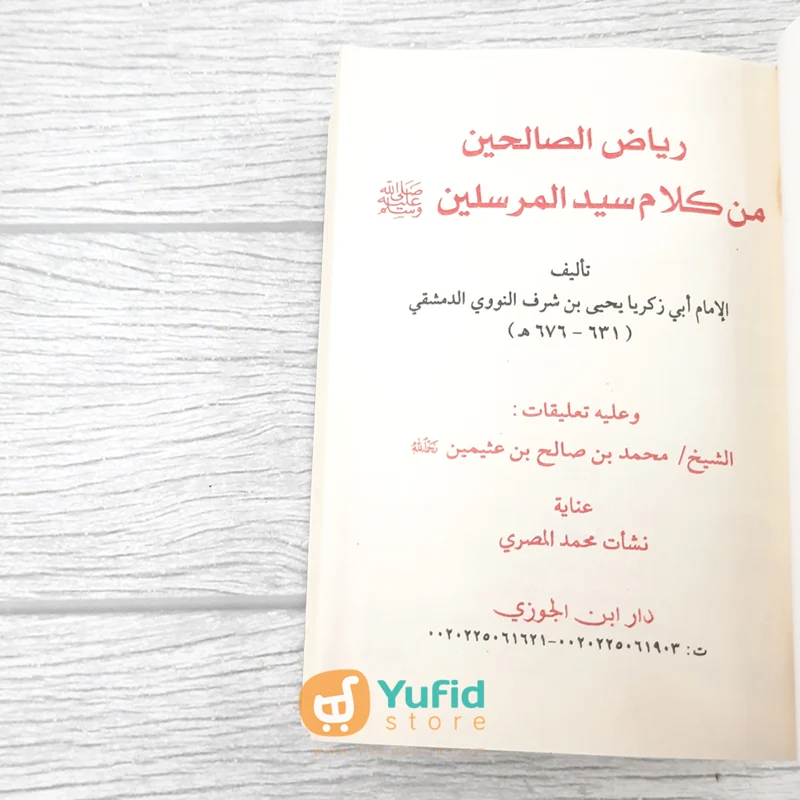 رياض الصالحين
من كلام سيد المرسلين ﷺ
تأليف
الإمام أبي زكريا يحيى بن شرف النووي الدمشقي
( ٦٣١ - ٦٧٦ هـ )
وعليه تعليقات :
الشيخ/ محمد بن صالح بن عثيمين رحمه الله
عناية
نشأت محمد المصري
دار ابن الجوزي
ت: ٠٠٢٠٢٢٥٠٦١٩٠٣-٠٠٢٠٢٢٥٠٦١٦٢١
Yufid
store